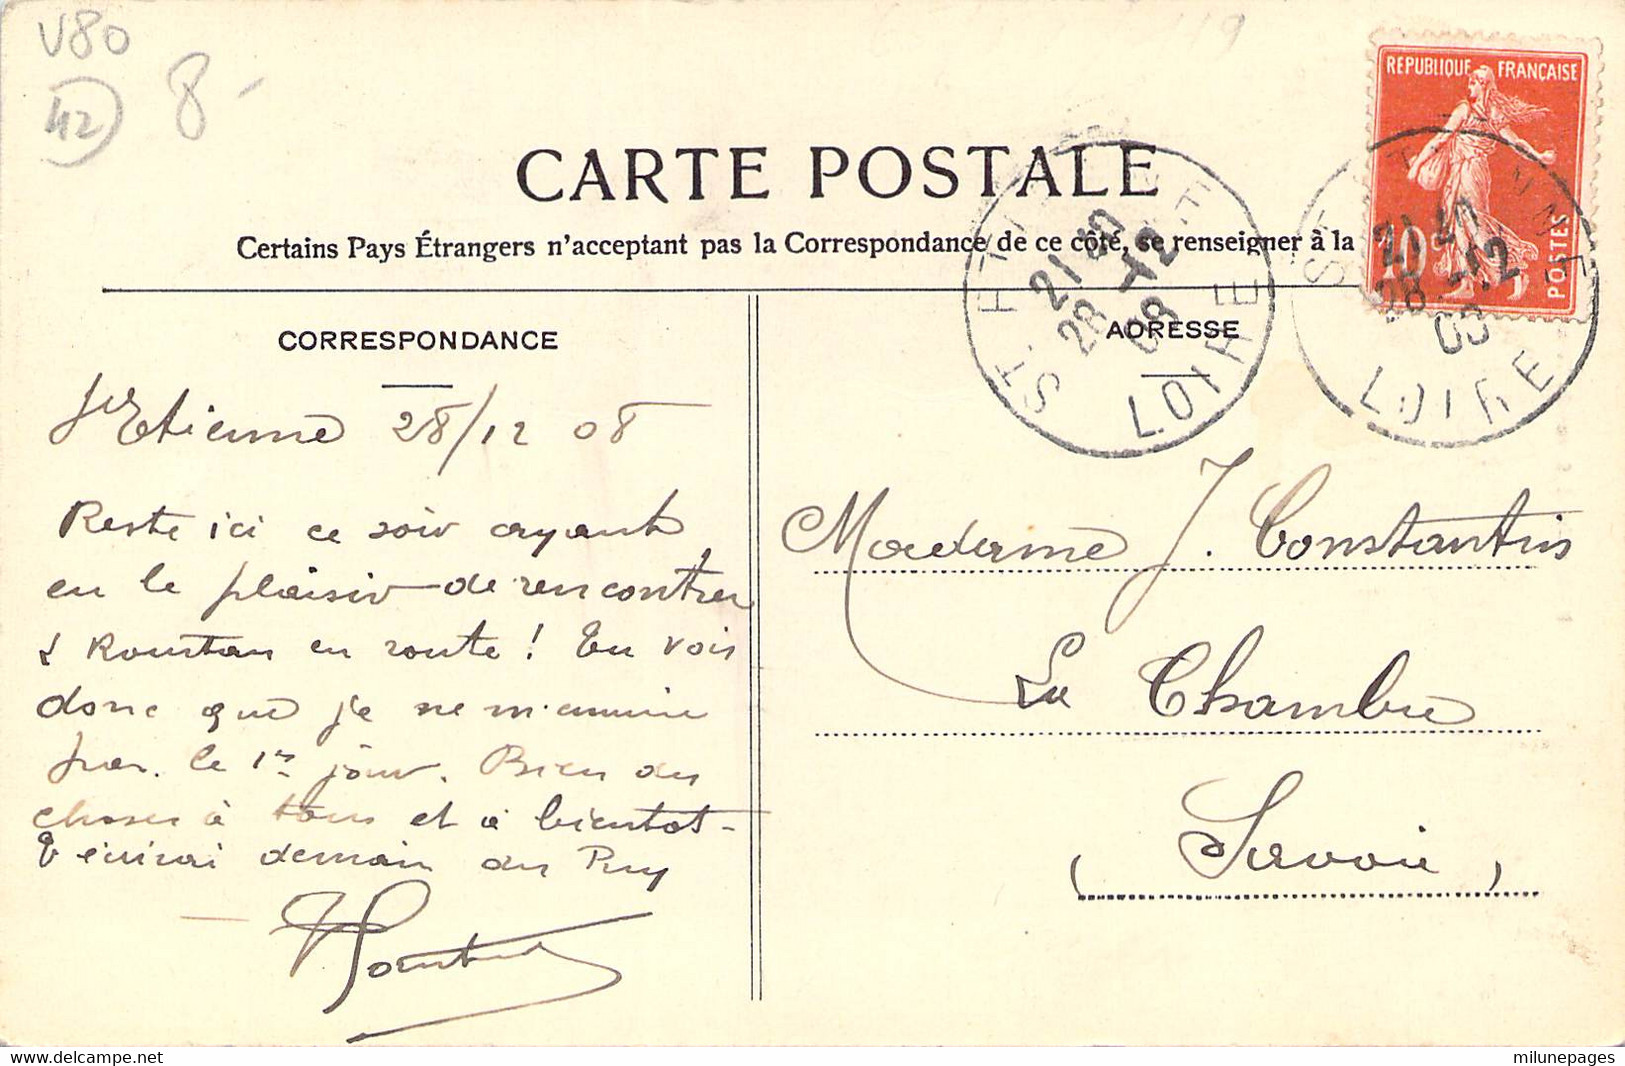 V80
42
8-
119
RÉPUBLIQUE FRANÇAISE
10c
POSTES
CARTE POSTALE
Certains Pays Étrangers n'acceptant pas la Correspondance de ce côté, se renseigner à la
ST. ETIENNE
21 40
28 -12
08
LOIRE
ST ETIENNE
21 40
28 -12
08
LOIRE
CORRESPONDANCE
ADRESSE
St Etienne 28/12 08
Reste ici ce soir ayant
eu le plaisir de rencontrer
Roustan en route ! Tu vois
donc que je ne m'ennuie
pas le 1er jour. Bien des
choses à tous et à bientot-
T'écrirai demain du Puy
Madame J. Constantin
La Chambre
(Savoie)
https://www.delcampe.net
milunepages